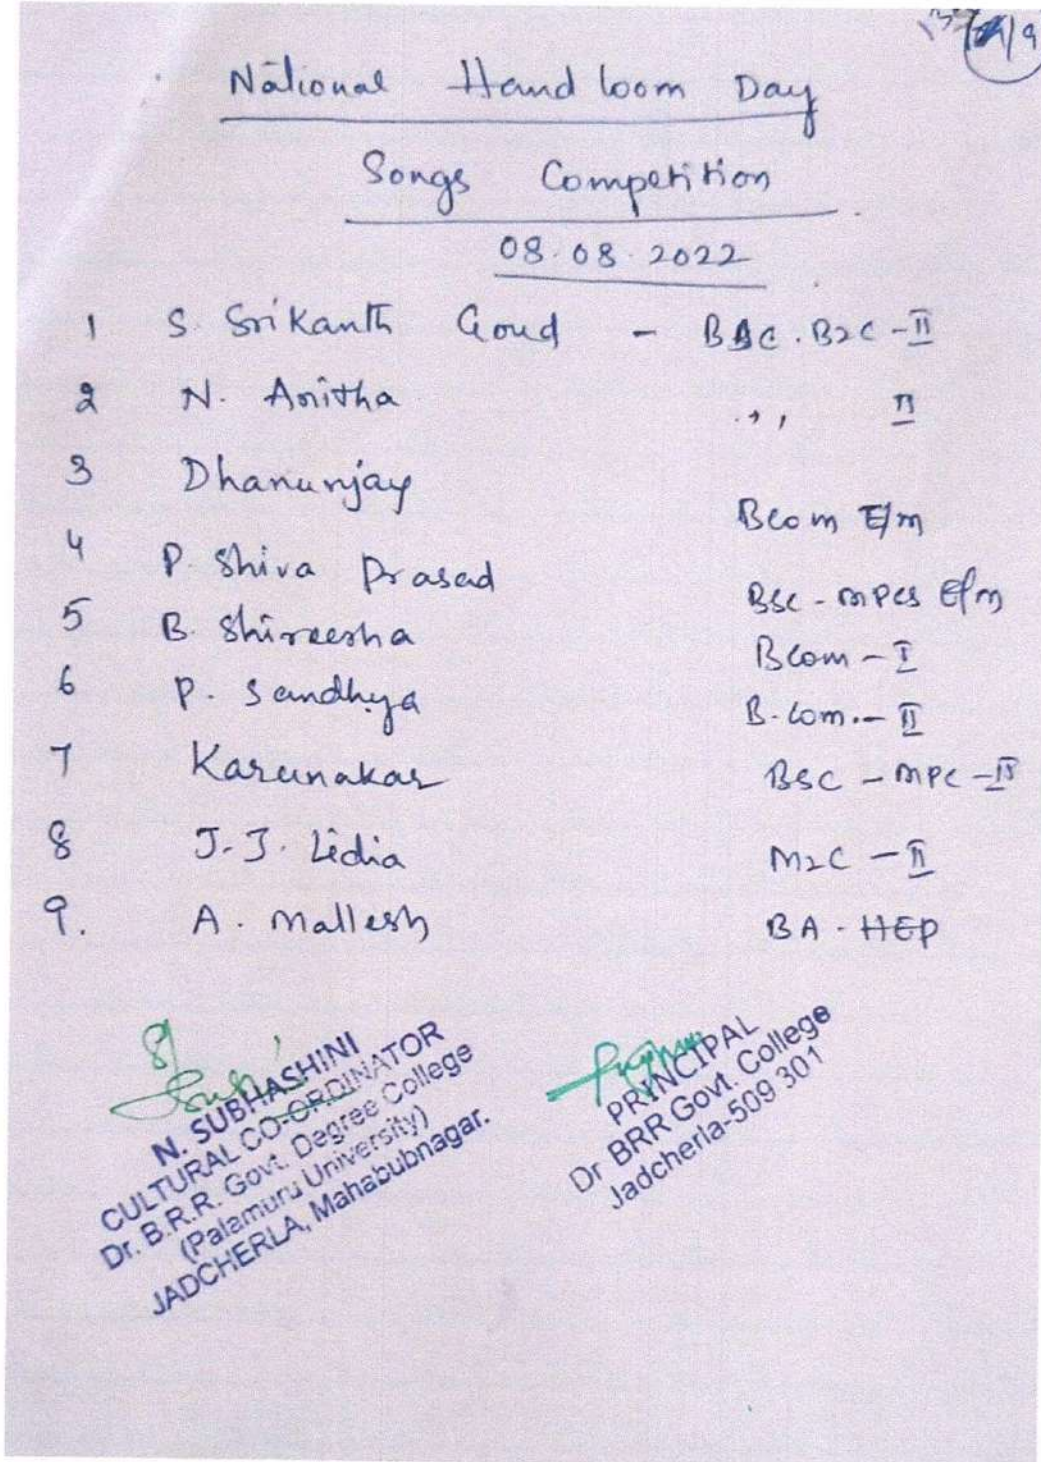 National Hand loom Day
Songs Competition
08.08.2022
1 S. Srikanth Goud - BSC. BZC - II
2 N. Anitha ,, II
3 Dhanunjay Bcom E/m
4 P. Shiva Prasad BSC - MPCS E/m
5 B. Shireesha Bcom - I
6 P. Sandhya B.Com. - II
7 Karunakar BSC - MPC - II
8 J.J. Lidia MZC - II
9. A. Mallesh BA - HEP
N. SUBHASHINI
CULTURAL CO-ORDINATOR
Dr. B.R.R. Govt. Degree College
(Palamuru University)
JADCHERLA, Mahabubnagar.
PRINCIPAL
Dr BRR Govt. College
Jadcherla-509 301